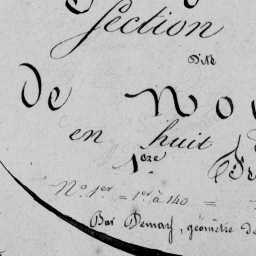 Section
Dite
de No
en huit
1ere
No. 1er = 1er à 140 =
Bar Demay, géomètre de